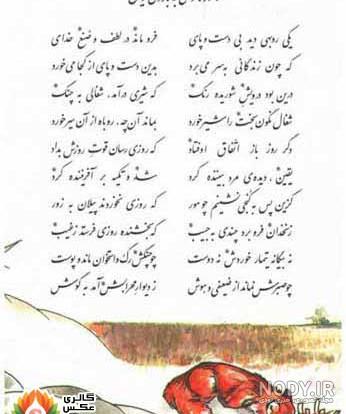 یکی روبهی دید بی دست و پای فرو ماند در لطف و صنع خدای
که چون زندگانی به سر می‌برد بدین دست و پای از کجا می خورد
درین بود درویش شوریده رنگ که شیری درآمد، شغالی به چنگ
شغال نگون بخت را شیر خورد بماند آن چه، روباه از آن سیر خورد
دگر روز باز اتفاق اوفتاد که روزی رسان قوت روزش بداد
یقین، دیده‌ی مرد بیننده کرد شد و تکیه بر آفریننده کرد
کزین پس به کنجی نشینم چو مور که روزی نخوردند پیلان به زور
زنخدان فرو برد چندی به جیب که بخشنده روزی فرستد ز غیب
نه بیگانه تیمار خوردش نه دوست چو چنگش رگ و استخوان ماند و پوست
چو صبرش نماند از ضعیفی و هوش ز دیوار محرابش آمد به گوش
NODY.IR
گالری عکس